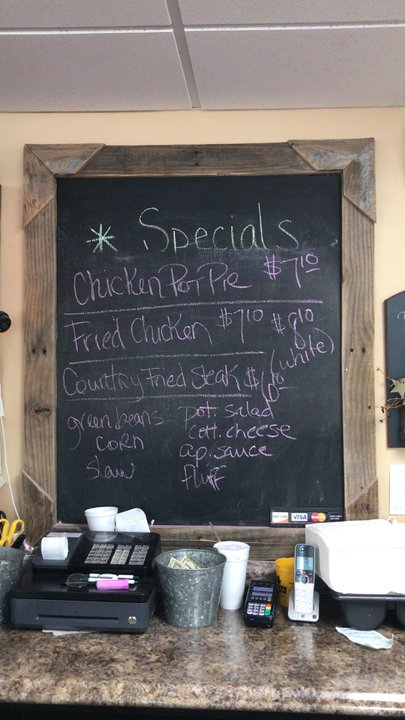 * Specials
Chicken Pot Pie $7.10
Fried Chicken $7.10 $8.10
(white)
Country Fried Steak $6.10
green beans pot. salad
corn cott. cheese
slaw ap. sauce
fluff
VISA